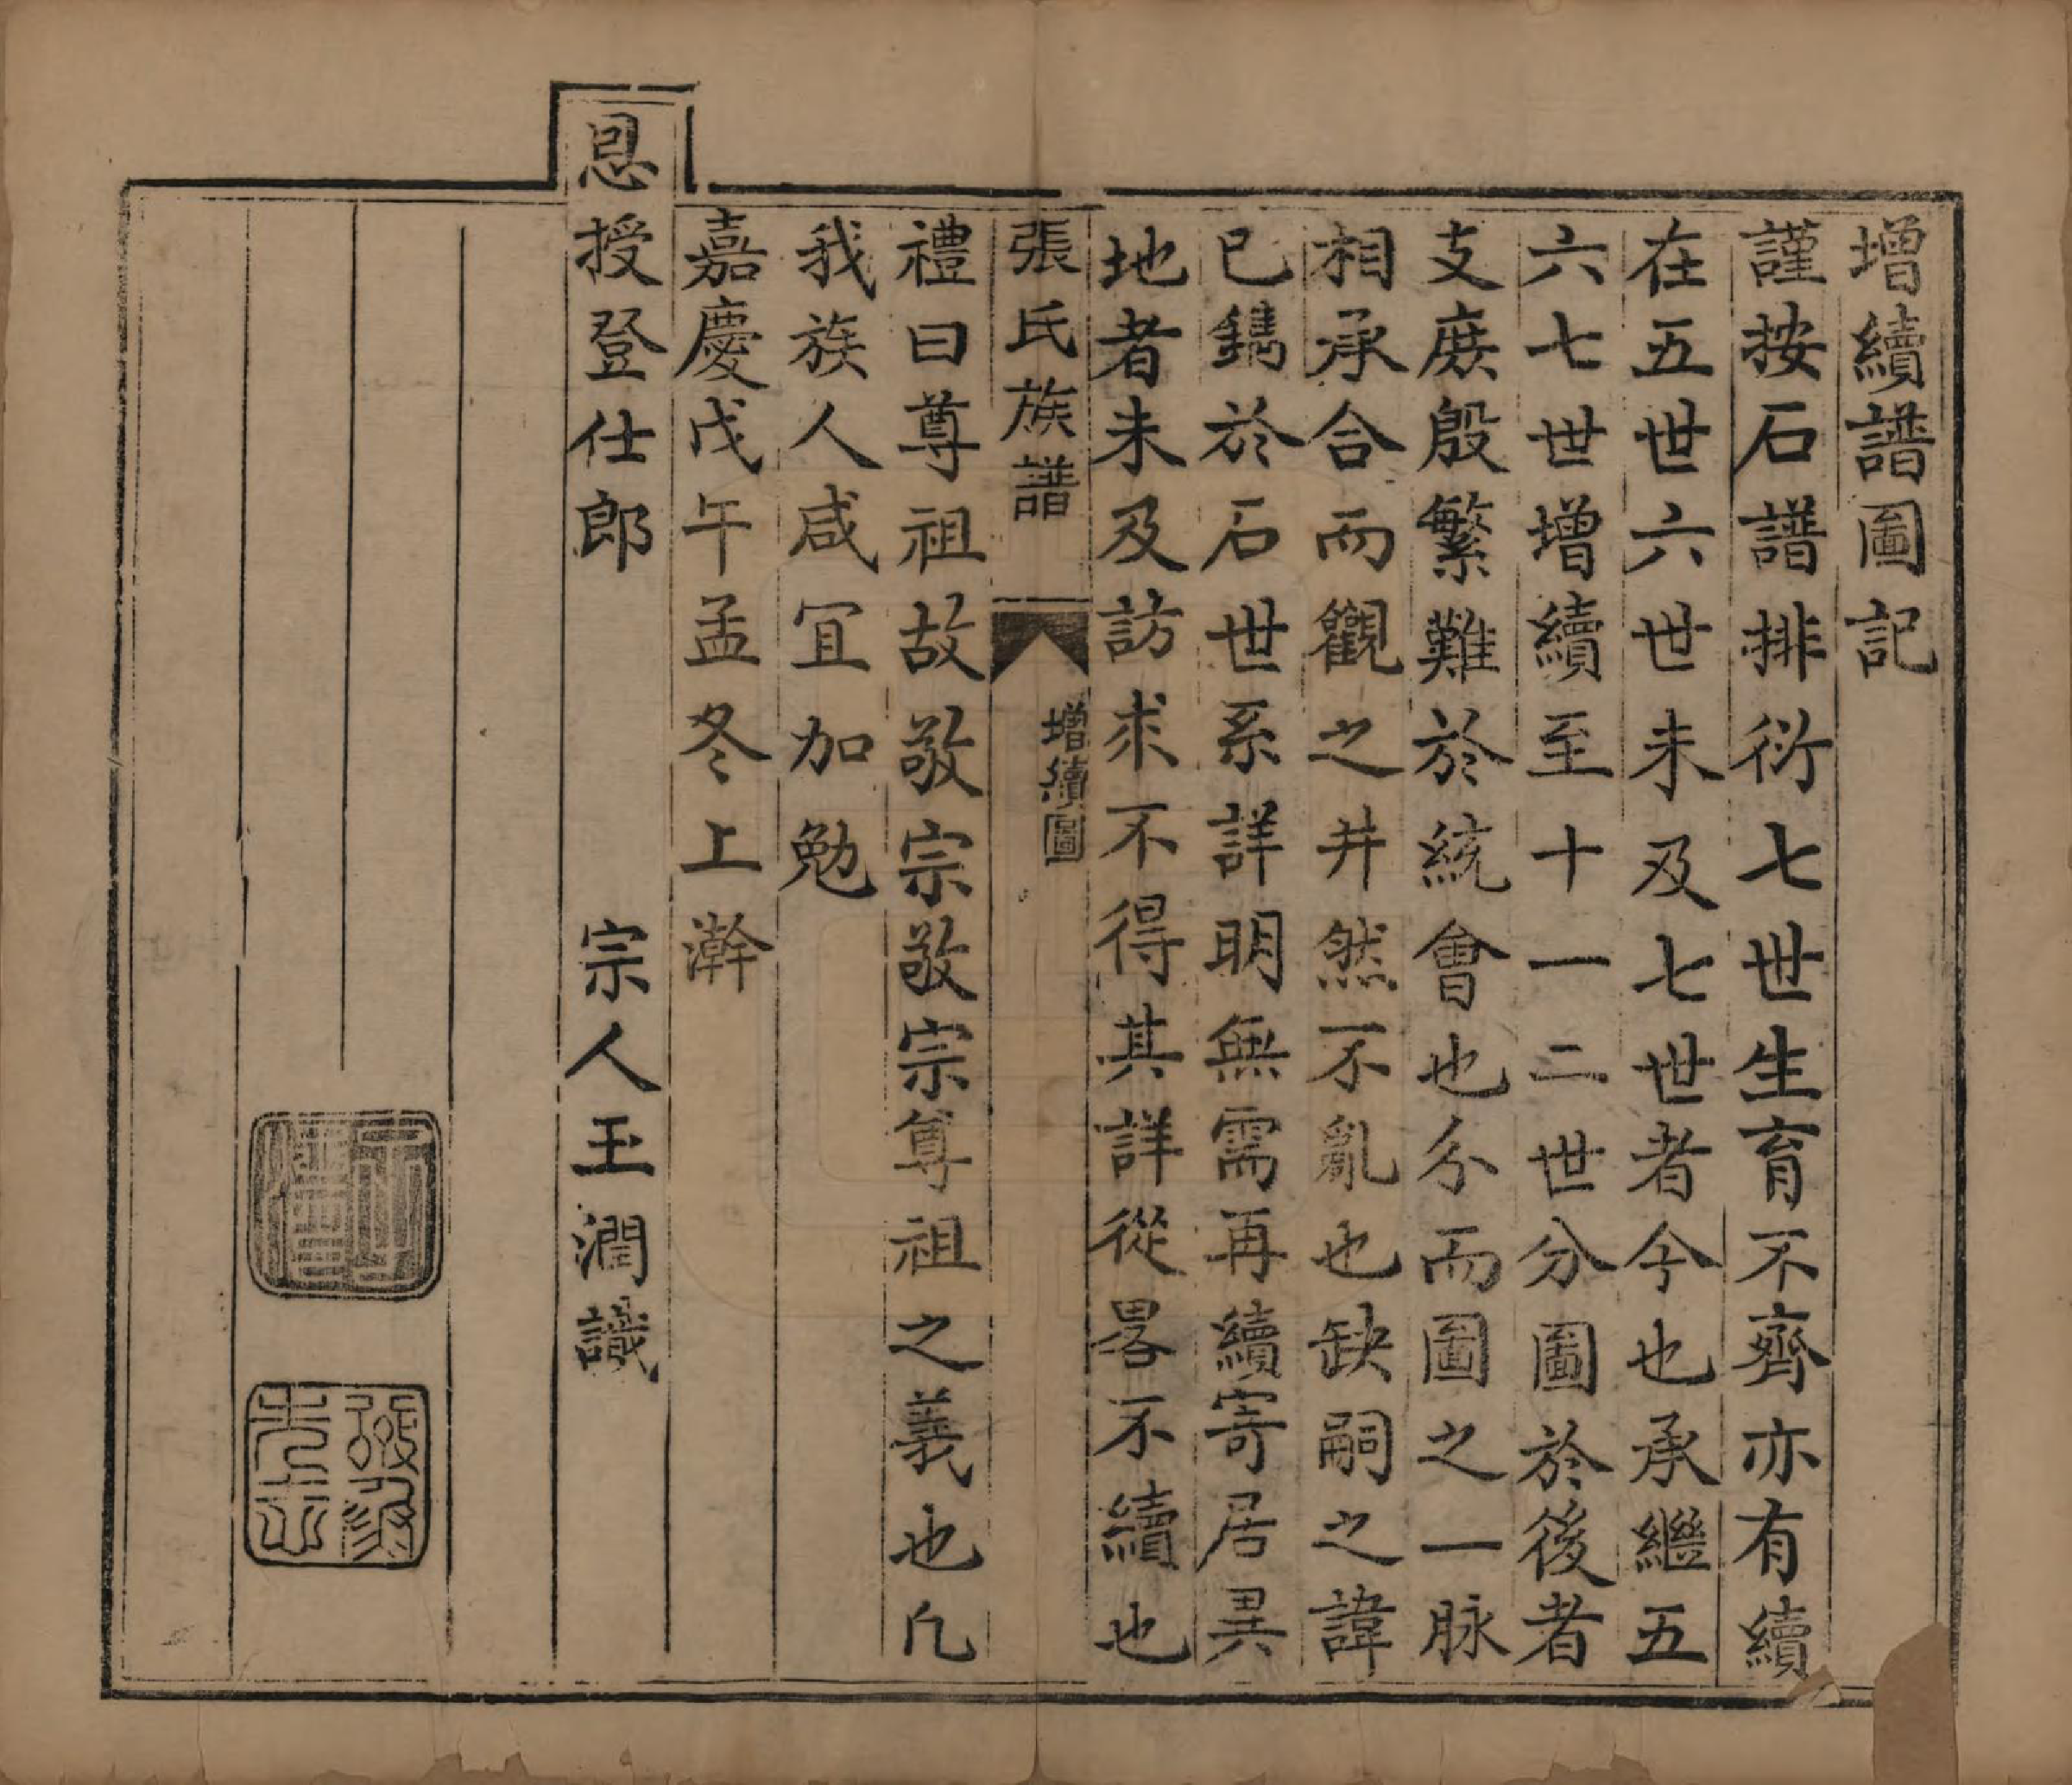 增續譜圖記
謹按石譜排衍七世生育不齊亦有續
在五世六世未及七世者今也承繼五
六七世增續至十一二世分圖於後者
支庻殷繁難於統會也分而圖之一脉
相承合而觀之井然不亂也缺嗣之諱
已鐫於石世系詳明無需再續寄居異
地者未及訪求不得其詳從畧不續也
張氏族譜 增續圖
禮曰尊祖故敬宗敬宗尊祖之義也凡
我族人咸宜加勉
嘉慶戊午孟冬上澣
恩授登仕郎 宗人玉潤識